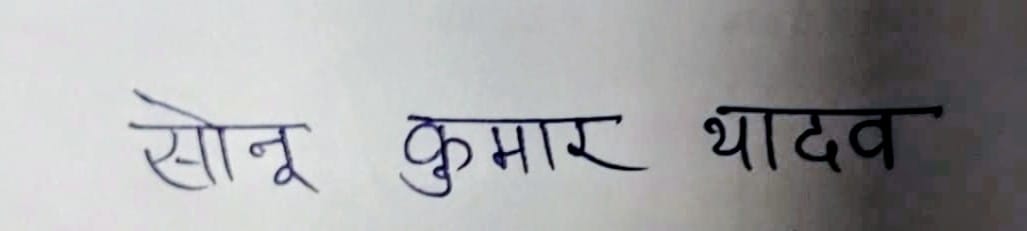 सोनू कुमार यादव